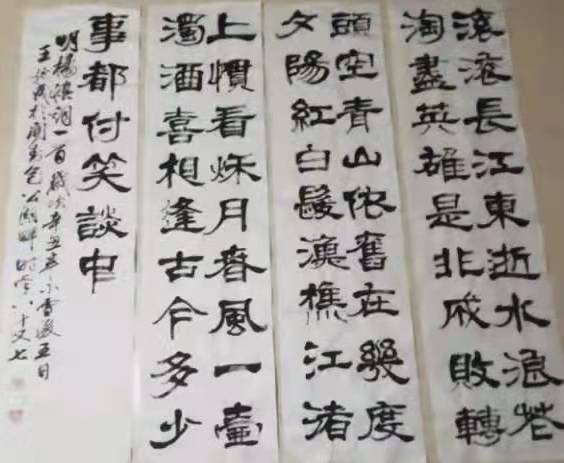 滚滚長江東逝水浪花
淘盡英雄是非成敗轉
頭空青山依舊在幾度
夕陽紅白髮漁樵江渚
上慣看秋月春風一壺
濁酒喜相逢古今多少
事都付笑談中
明楊慎詞一首歲次辛丑年小雪後五日
王公湖畔時年八十又七